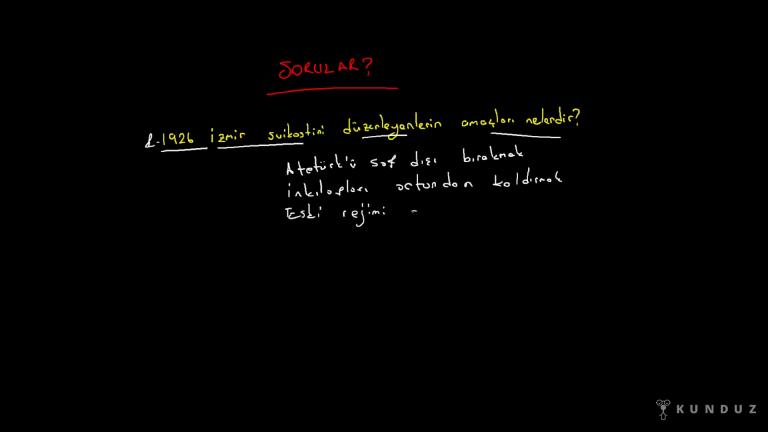 SORULAR?
1-1926 İzmir suikastini düzenleyenlerin amaçları nelerdir?
Atatürk'ü saf dışı bırakmak
inkılapları ortandan kaldırmak
Eski rejimi
KUNDUZ